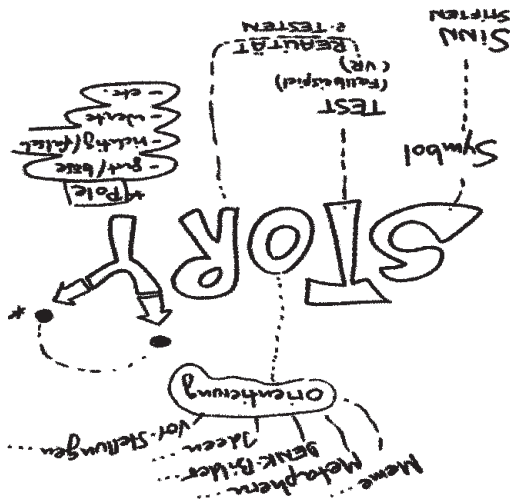 Meme ...
Metaphern ...
DENK-Bilder ...
Ideen ...
Vor-Stellungen ...
Orientierung
*
STORY
Symbol
SiNN
STiFTEN
TEST
(Fallbeispiel)
(VR)
REALITÄT
2·TESTEN
* Pole
- gut/böse
- richtig/falsch
- werte
- etc.